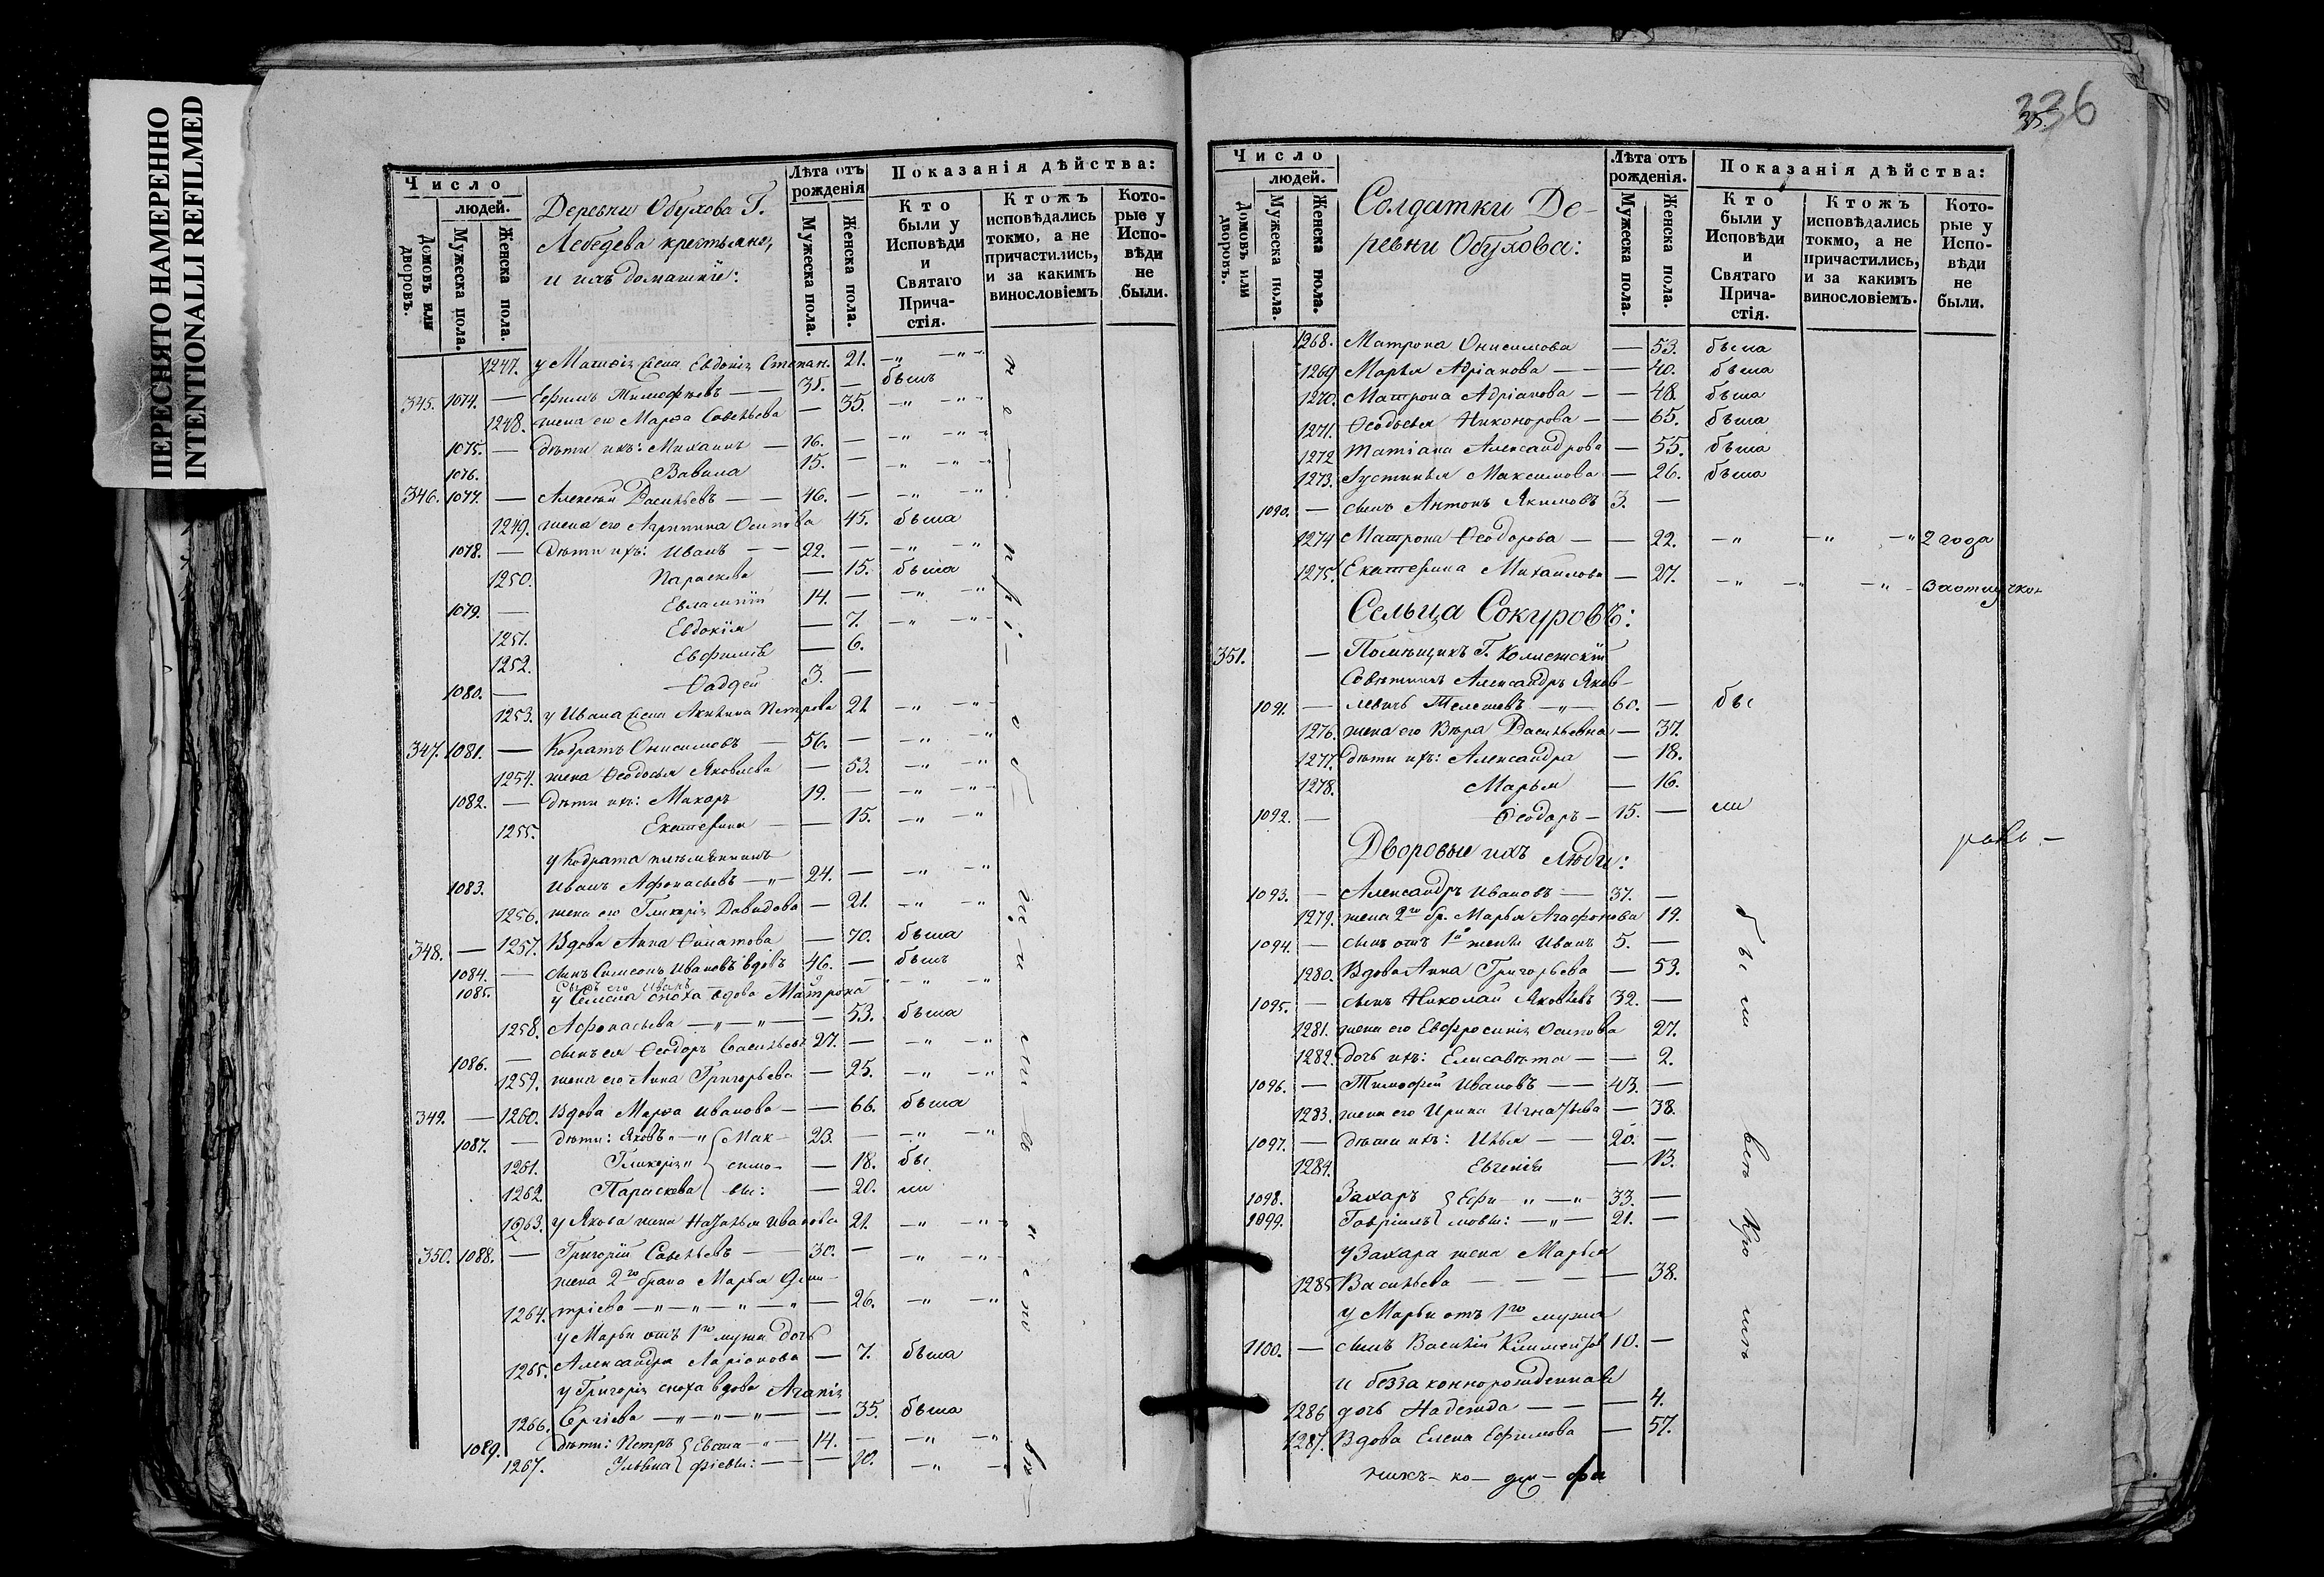 ПЕРЕСНЯТО НАМЕРЕННО
INTENTIONALLI REFILMED
Число
людей.
Домовъ или дворовъ.
Мужеска пола.
Женска пола.
Деревни Обухова Г.
Лебедева крестьяне,
и ихъ домашнїе:
Лѣта отъ рожденія
Мужеска пола.
Женска пола.
Показанія дѣйства:
Кто были у Исповѣди и Святаго Причастія.
Ктожъ исповѣдались токмо, а не причастились, и за какимъ винословіемъ
Которые у Исповѣди не были.
1247. у жена Евдокія Степан. 21. —„ —„
345. 1074. — Ефимъ Тимофѣевъ — 38. — былъ
1248. жена его Марѳа Савельева — 35. —„ —„
1075. — дѣти ихъ: Михаилъ — 16. — —„ —„
1076. Вавила 15. — —„ —„
346. 1077. — Алексѣй Васильевъ — — 46. — —„ —„
1249. жена его Агрипина Осипова 45. была
1078. — Дѣти ихъ: Иванъ — — 22. — —„ —„
1250. Параскева — 15. была
1079. — Евлампїй 14. — —„ —„
1251. Евдокїя — 7. —„ —„
1252. Евфимїя — 6.
1080. — Ѳаддей 3. —
1253. у Ивана жена Акилина Петрова 21. —„ —„
347. 1081. — Кодратъ Онисимовъ — 56. — —„ —„
1254. жена Ѳеодосья Яковлева — 53. —„ —„
1082. — Дѣти ихъ: Макаръ 19. — —„ —„
1255. Екатерина — — 15. —„ —„
у Кодрата племянникъ
1083. Иванъ Афонасьевъ —„— 24. — —„ —„
1256. жена его Гликерія Давидова — 21. —„ —„
348. — 1257. Вдова Анна — 70. была
1084. — сынъ Симеонъ Ивановъ вдовъ 46. — былъ
1085. Сынъ его Иванъ —„ —„
у сноха вдова Матрона
1258. Афонасьева —„—„— — 53. была
1086. — сынъ ея Ѳеодоръ Васильевъ 27. — —„ —„
1259. жена его Анна Григорьева — 25. —„ —„
349. — 1260. Вдова Марѳа Иванова — — 66. была
1087. — дѣти: Яковъ —„ { Мак- 23. — —„ —„
1261. Гликерія „ { симо- — 18. бы
1262. Параскева { вы: — 20. ли
1263. у Якова жена Наталья Иванова 21. —„ —„
350. 1088. — Григорїй Савельевъ — 30. — —„ —„
жена 2го брака Марья Дми-
1264. трїева —„—„—„—„ — 26. —„ —„
у Марьи отъ 1го мужа дочь
1265. Александра Ларїонова — 7. была
у Григорія сноха вдова Агапія
1266. Сергїева —„—„—„— — 35. была
1089. дѣти: Петръ { Евста —„— 14. — —„ —„
1267. Ульяна { фїевы: — — 10. —„ —„
336
Число
людей.
Домовъ или дворовъ.
Мужеска пола.
Женска пола.
Солдатки Де-
ревни Обухова:
Лѣта отъ рожденія.
Мужеска пола.
Женска пола.
Показанія дѣйства:
Кто были у Исповѣди и Святаго Причастія.
Ктожъ исповѣдались токмо, а не причастились, и за какимъ винословіемъ.
Которые у Исповѣди не были.
1268. Матрона Онисимова — 53. была
1269. Марья Адрїанова — — — 40. была
1270. Матрона Адрїанова — — 48. была
1271. Ѳеодосья Никонорова — — 65. была
1272 Татіана Александрова — 55. была
1273. Устинья Максимова — 26. была
1090. — сынъ Антонъ Якимовъ 3. —
1274 Матрона Ѳеодорова — — 22. —„ —„ —„ 2 года
1275. Екатерина Михаилова — 27. —„ —„ —„ — За отлучкою
Сельца Сокуровъ:
351. — Помѣщикъ Г. Колежскїй
Совѣтникъ Александръ Яков-
1091. — левичъ Телешевъ —„— 60. — бы
1276. жена его Вѣра Васильевна — 37.
1277. дѣти ихъ: Александра — 18.
1278. Марья — 16.
1092. — Ѳеодоръ — 15. — ли
Дворовые ихъ люди:
1093. — Александръ Ивановъ — 37. —
1279. жена 2го бр. Марья Агафонова 19.
1094. — сынъ отъ 1й жены Иванъ 5. —
1280. Вдова Анна Григорьева — 53.
1095. — сынъ Николай Яковлевъ 32. —
1281. жена его Евфросинія Осипова 27.
1282. дочь ихъ: Елисавета — — 2.
1096. — Тимофей Ивановъ — — 43. —
1283. жена его Ирина Игнатьева — 38.
1097. — дѣти ихъ: Илья — — 20. —
1284. Евгенія — 13.
1098. Захаръ { Ефи —„—„— 33. —
1099. Гаврїилъ { мовы: —„— 21. —
у Захара жена Марья
1285 Васильева — — — — 38.
у Марьи отъ 1го мужа
1100. — сынъ Василїй Климентов 10. —
и беззаконнорожденная
1286 дочь Надежда — — — 4.
1287. Вдова Елена Ефимова — 57.